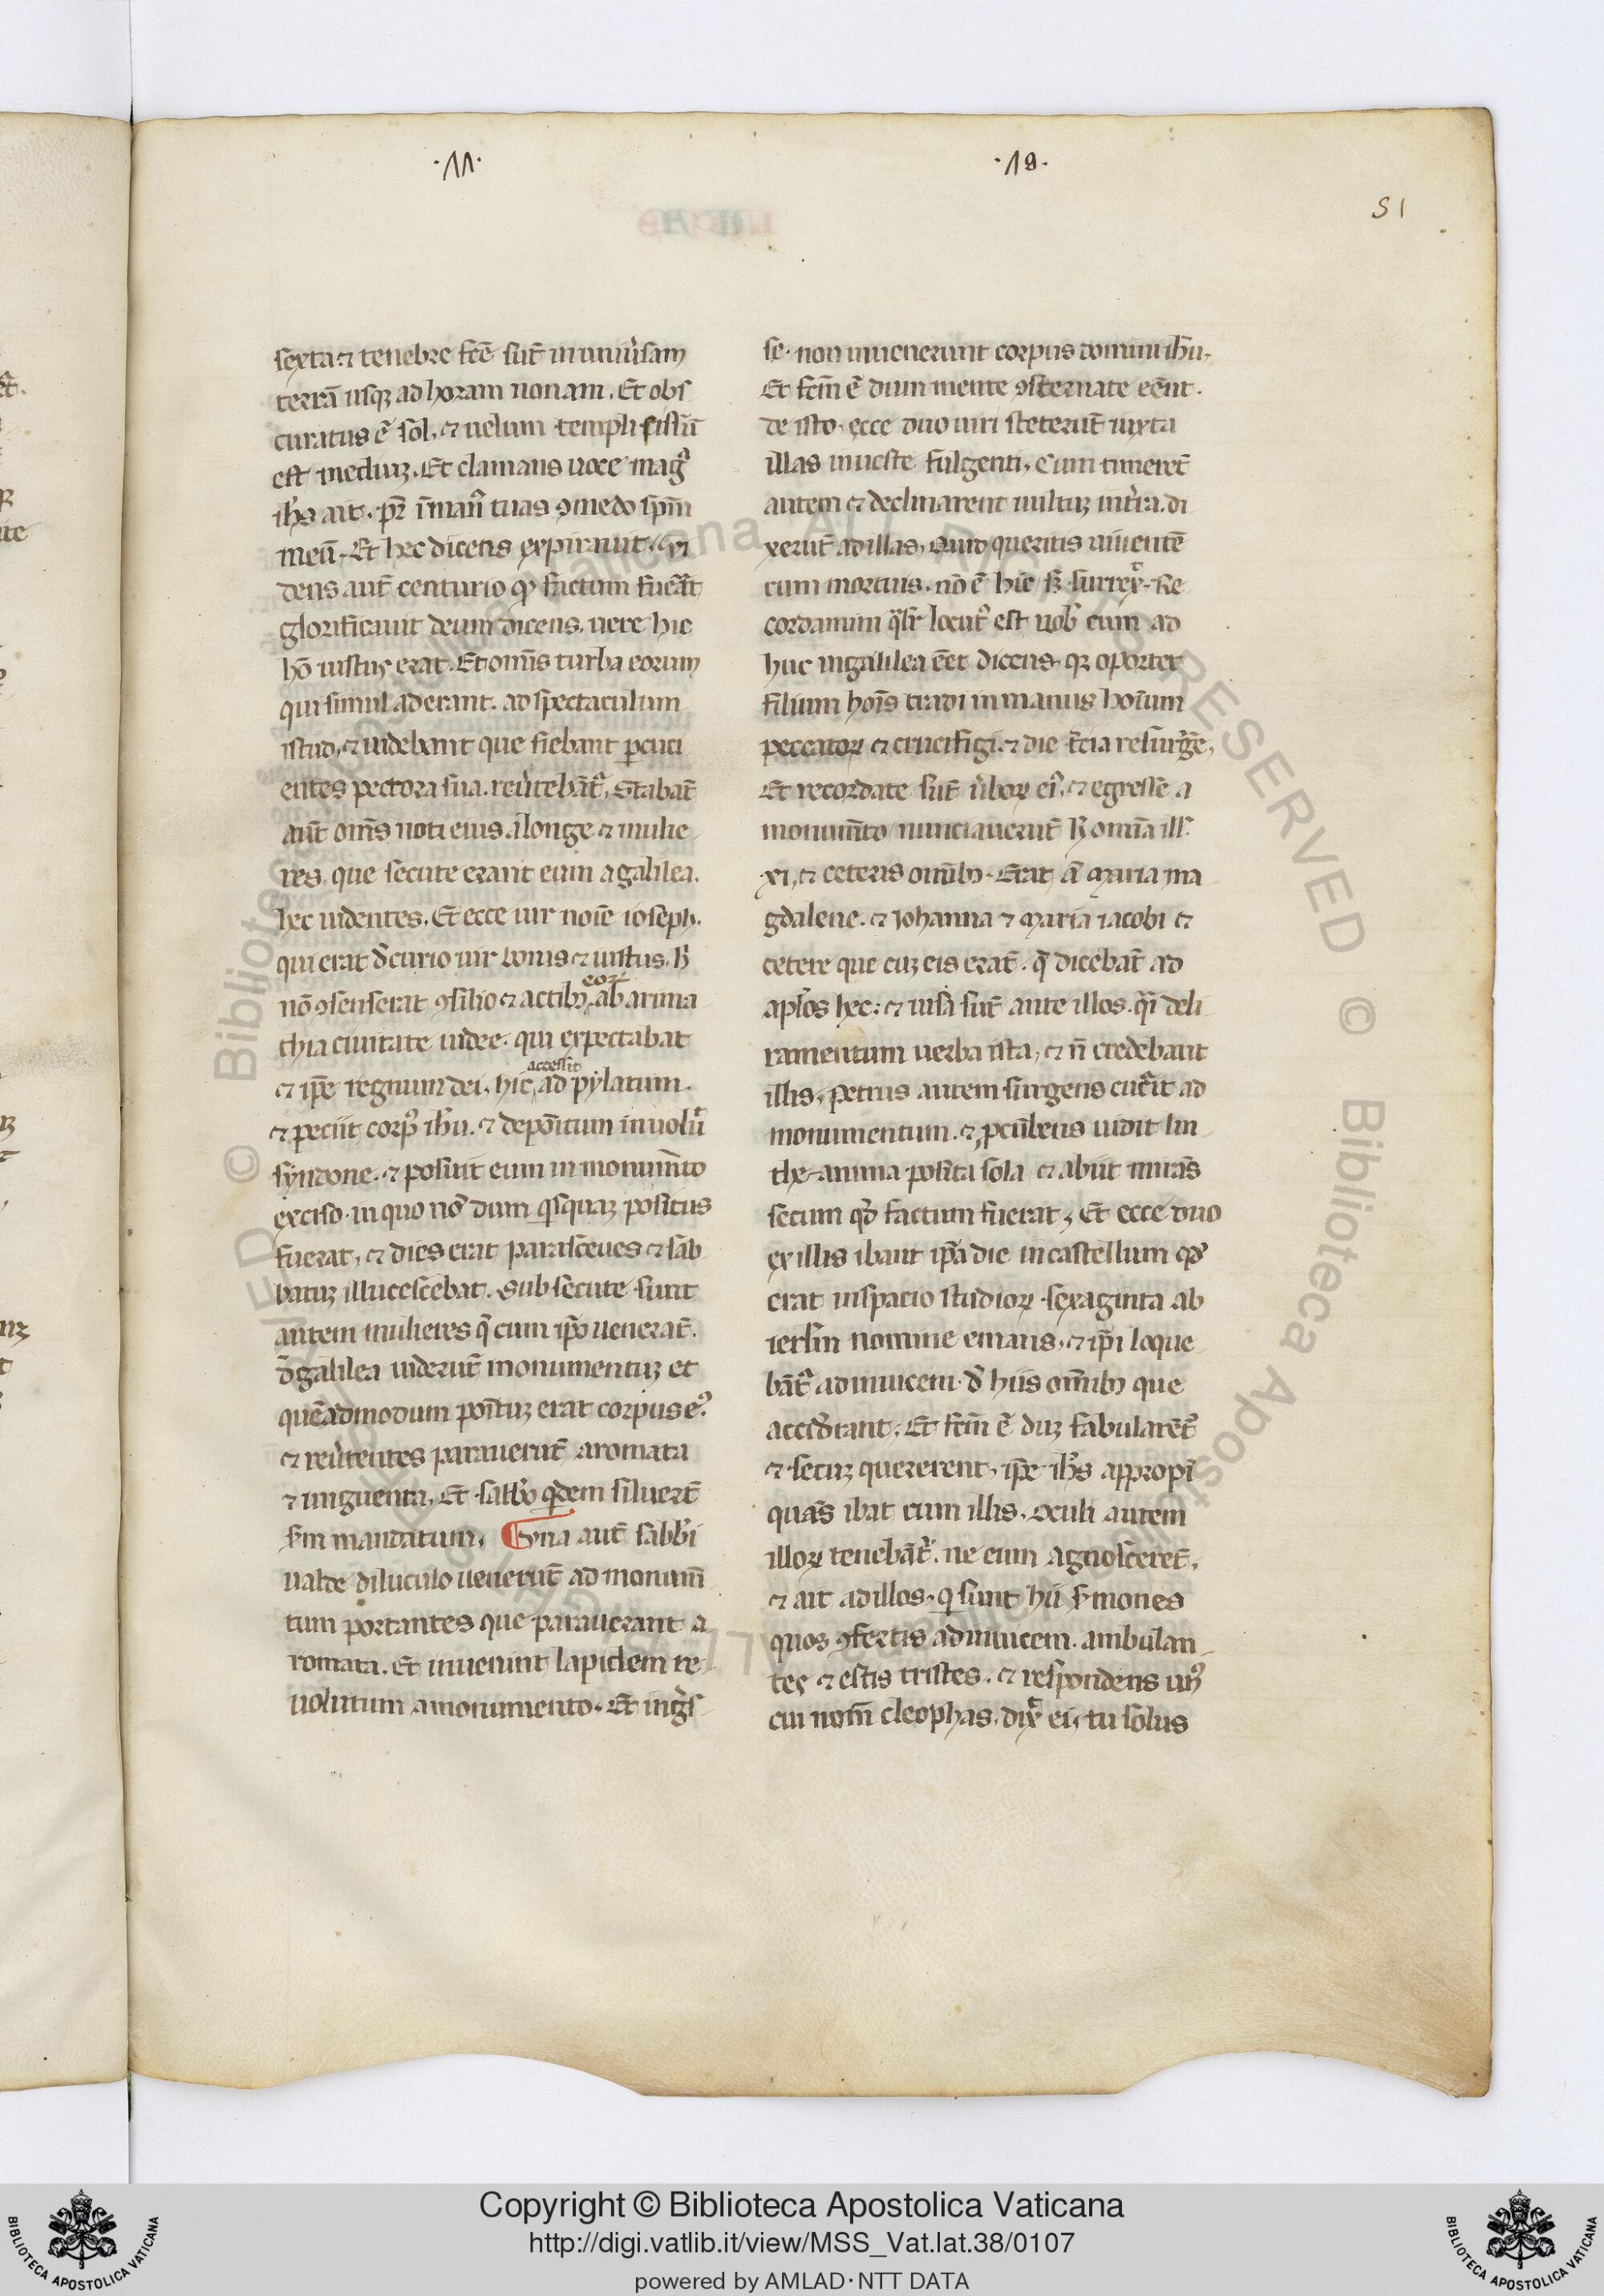 ·11·
·19·
51
sexta. ⁊ tenebre fcē sūt in uniu̓sam
terrā usqꝫ ad horam nonam. Et obs
curatus ē sol. ⁊ uelum templi fissū
est mediuꝫ. Et clamans uoce mag͛
ihs̄ ait. pr̄ ī man᷒ tuas ꝯmedo sp̄m
meū. Et hec dicens expirauit. Vi
dens aut̄ centurio qꝫ factum fuerāt
glorificauit deum dicens. uere hic
hō iustus erat. Et om̄s turba eorum
qui simul aderant. ad spectaculum
istud. ⁊ uidebant que fiebant ꝑcuci
entes pectora sua. reu̓tebāt᷑. Stabāt
aūt om̄s noti eius a longe ⁊ mulie
res. que secute erant eum a galilea.
hec uidentes. Et ecce uir noīe ioseph.
qui erat d̓curio uir bonus ⁊ iustus. ħ
nō ꝯsenserat ꝯsilio ⁊ actibꝫ eoꝝ ab arima
thia ciuitate iudee. qui expectabat
⁊ ip̄e regnum dei. hic accessit ad pylatum.
⁊ peciit corp᷒ ihu̅. ⁊ depoītum inuolu̓
syndone. ⁊ posuit eum in monum̄to
exciso. in quo nō dum qͥsquaꝫ positus
fuerat. ⁊ dies erat parasceues ⁊ sab
batuꝫ illucescebat. Sub secute sunt
autem mulieres q̄ cum ip̄o uenerāt.
d̓ galilea uiderūt monumentuꝫ et
quēadmodum poītuꝫ erat corpus e᷒.
⁊ reu̓tentes parauerūt aromata
⁊ unguenta. Et sabb̄o qͥdem siluert̄
sꝫm mandatum. Una aut̄ sabb̄i
ualde diluculo uenerūt ad monum̄
tum portantes que parauerant a
romata. Et inuenīnt lapidem re
uolutum a monumento. Et ingͤs
se. non inuenerunt corpus domini ihu̅.
Et fcm̄ ē dum mente ꝯsternate eēnt.
de isto. ecce duo uiri steterūt iuxta
illas in ueste fulgenti. Cum timerēt
autem ⁊ declinarent uultuꝫ in t̓ra. di
xerūt ad illas. Quid queritis uiuentē
cum mortuis. nō ē hic sꝫ surrex͛. Re
cordamini qͣlr̄ locut᷒ est uob̄ cum ad
huc in galilea eēt dicens. qꝫ oportet
filium hoīs tradi in manus hoīum
peccatoꝝ ⁊ crucifigi. ⁊ die t̓cia resurg̓e.
Et recordate sūt u̓boꝝ ei᷒. ⁊ egresse a
monum̄to nunciauerūt ħ omīa ill᷒
xi. ⁊ ceteris omībꝫ. Erat aū maria ma
gdalene. ⁊ iohanna ⁊ maria iacobi ⁊
cetere que cuꝫ eis erāt. q̄ dicebāt ad
apl̓os hec: ⁊ uisa sūt ante illos. qͣi deli
ramentum uerba ista. ⁊ n̄ credebant
illis. Petrus autem surgens cuc̓rit ad
monumentum. ⁊ ꝓcūbens uidit lin
theamina posita sola. ⁊ abiit mirās
secum qd̓ factum fuerat. Et ecce duo
ex illis ibant ip̄a die in castellum qd̓
erat in spacio studioꝝ sexaginta ab
ierlm̄ nomine emaus. ⁊ ip̄i loque
bāt᷑ ad inuicem. d̓ hiis om̄ibꝫ que
accid̓rant. Et fcm̄ ē duꝫ fabularēt᷑
⁊ secuꝫ quererent. ip̄e ihs̄ appropī
quās ibat cum illis. Oculi autem
illoꝝ tenebāt᷑. ne eum agnoscerēt.
⁊ ait ad illos. qͥ sunt hii s̓mones
quos ꝯfertis ad inuicem. ambulan
tes ⁊ estis tristes. ⁊ respondens un᷒
cui nom̄ cleophas. dix͛ ei. tu solus
Copyright © Biblioteca Apostolica Vaticana
http://digi.vatlib.it/view/MSS_Vat.lat.38/0107
powered by AMLAD·NTT DATA
BIBLIOTECA APOSTOLICA VATICANA
BIBLIOTECA APOSTOLICA VATICANA